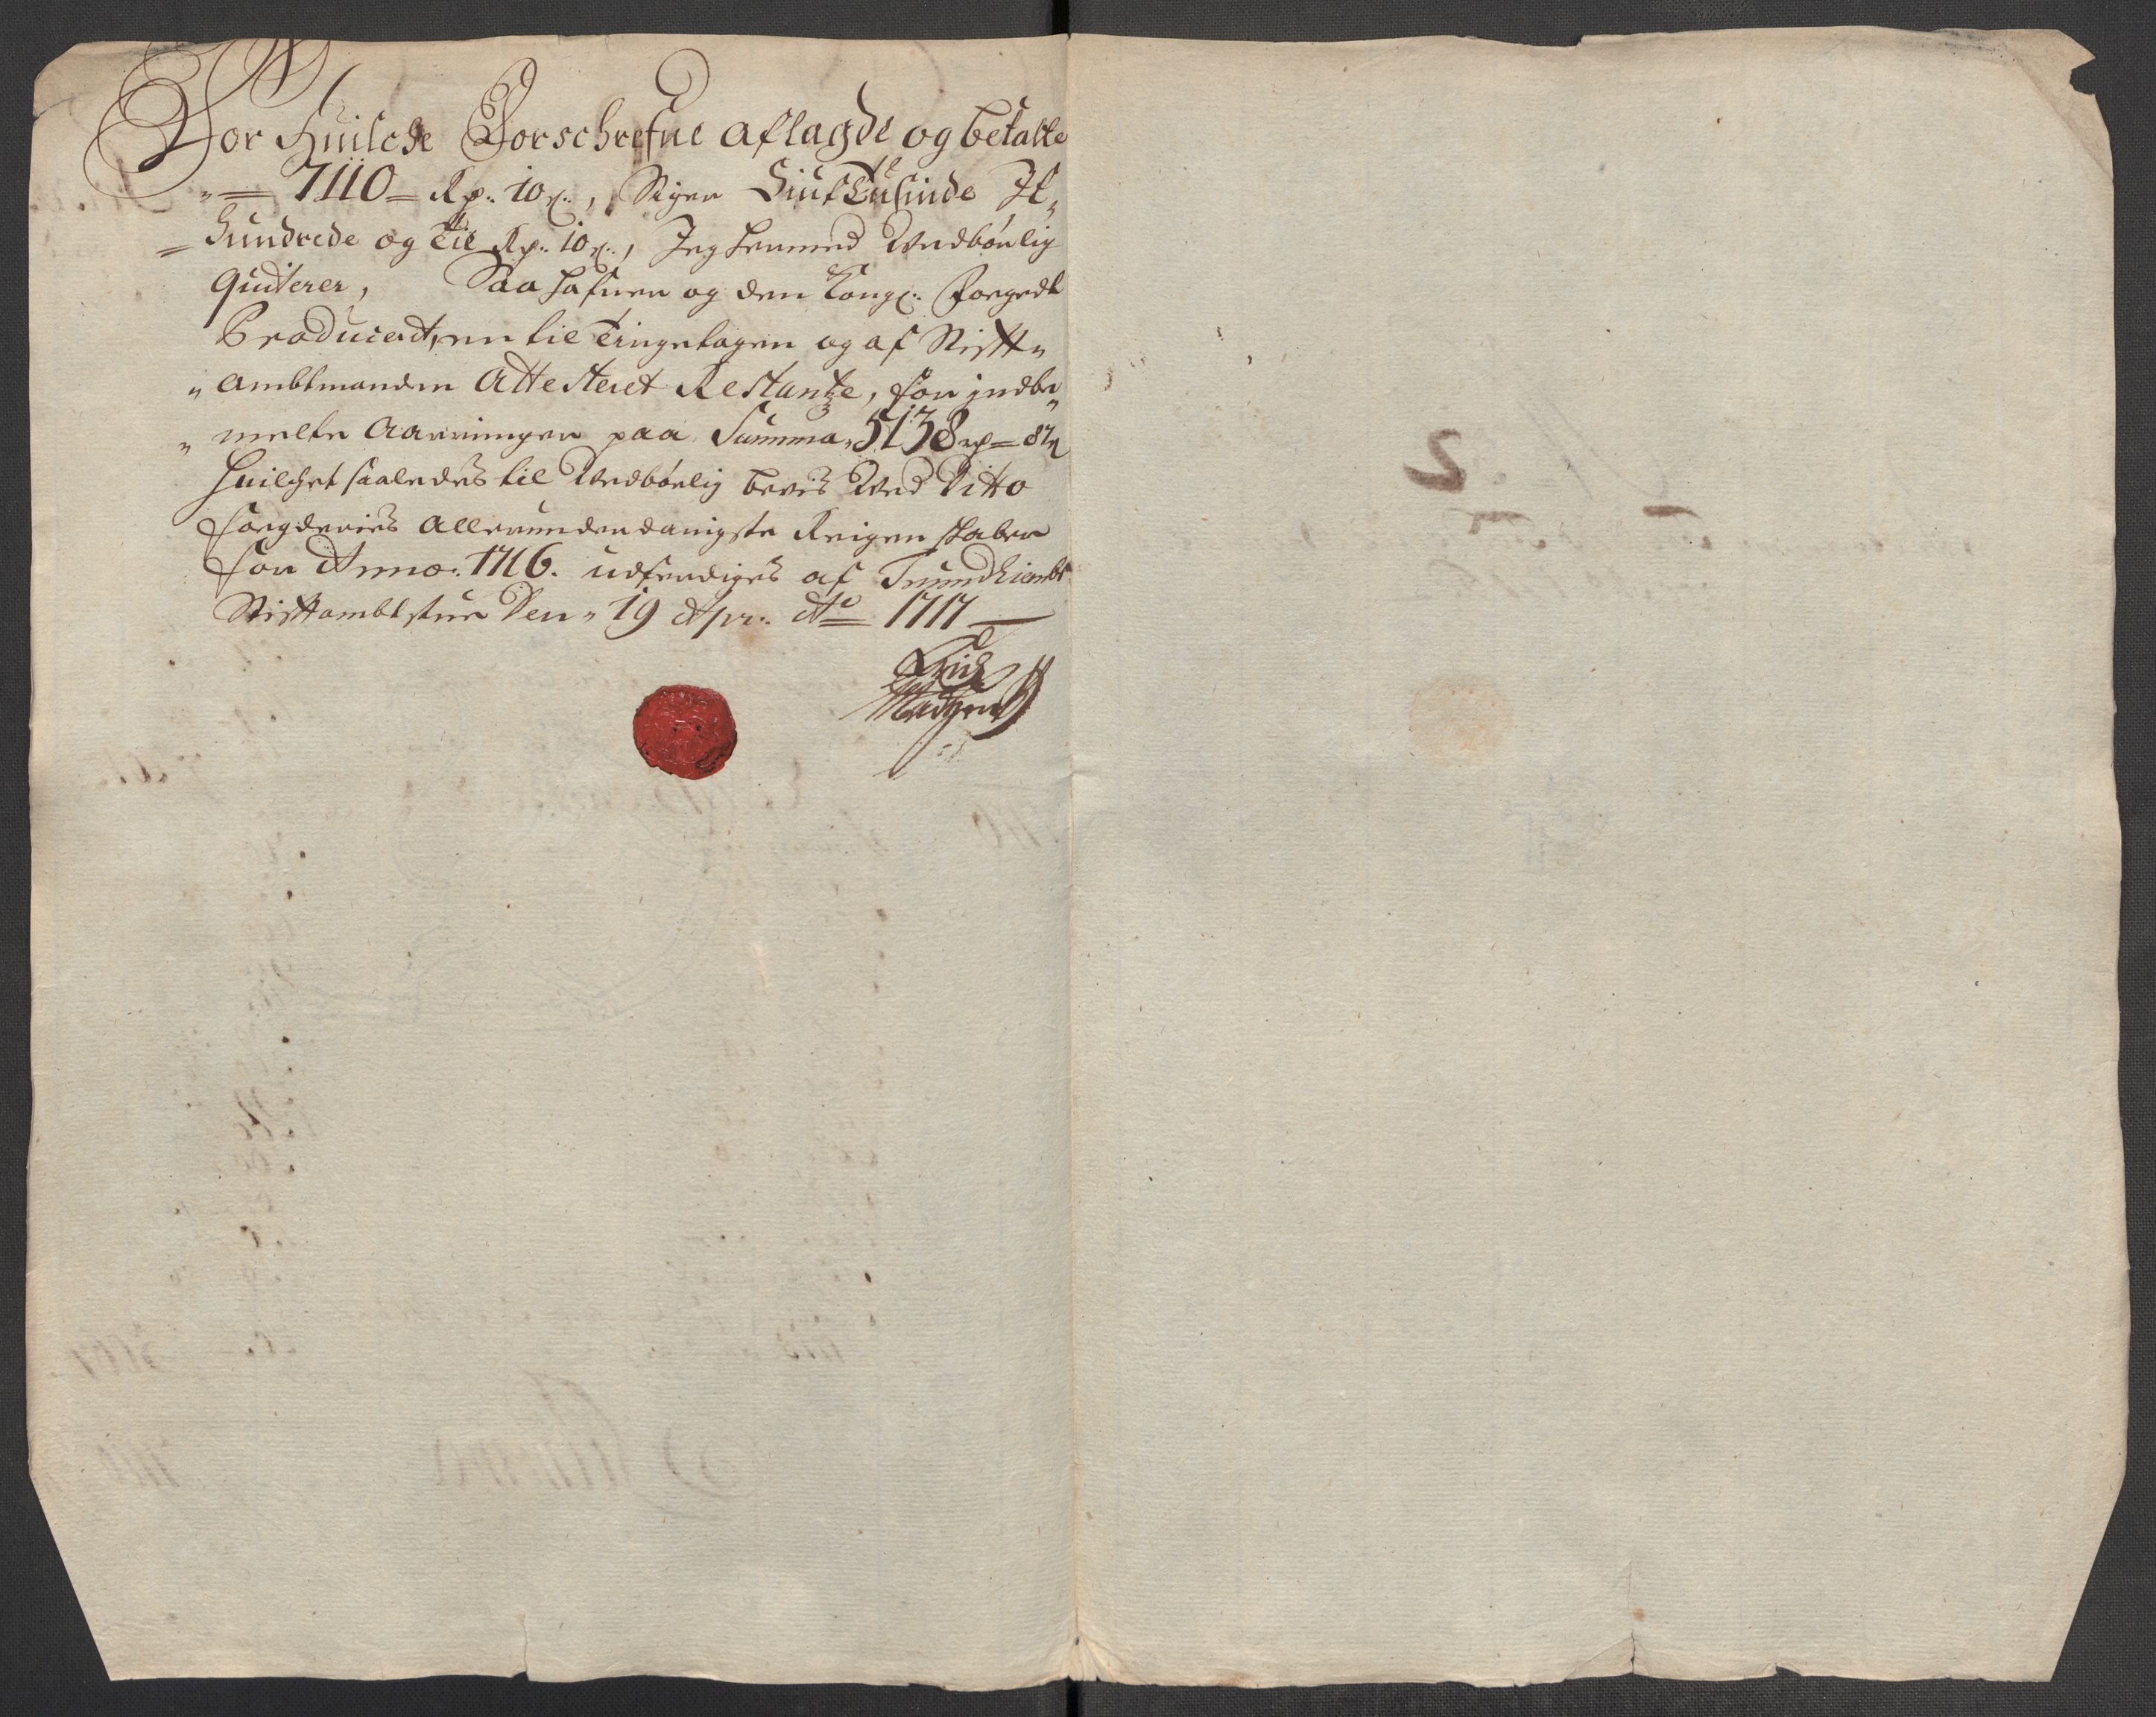 For Huilche Forschrefne aflagde og betalte
7110 Rp: 10 s:, Siger Siuf Tusinde Et
Hundrede og Tie Rp: 10 s:, Jeg hermed Wedbørlig
Quiterer, Saa hafuer og den Kongl: Foegedt
Producert, en til Tingetagen og af Stift-
ambtmanden Attesteret Restantze, for indbe-
melte Aaringer paa Summa 5138 rp 87 s
Huilchet saaledes til Wedbørlig beviis Wed Ditto
Foegderies Allerunderdanigste Reigenskaber
for Anno: 1716. udferdiges af Trundhiembs
Stiftambtstue Den 19 Apr: Ao 1717
Madtzen
2